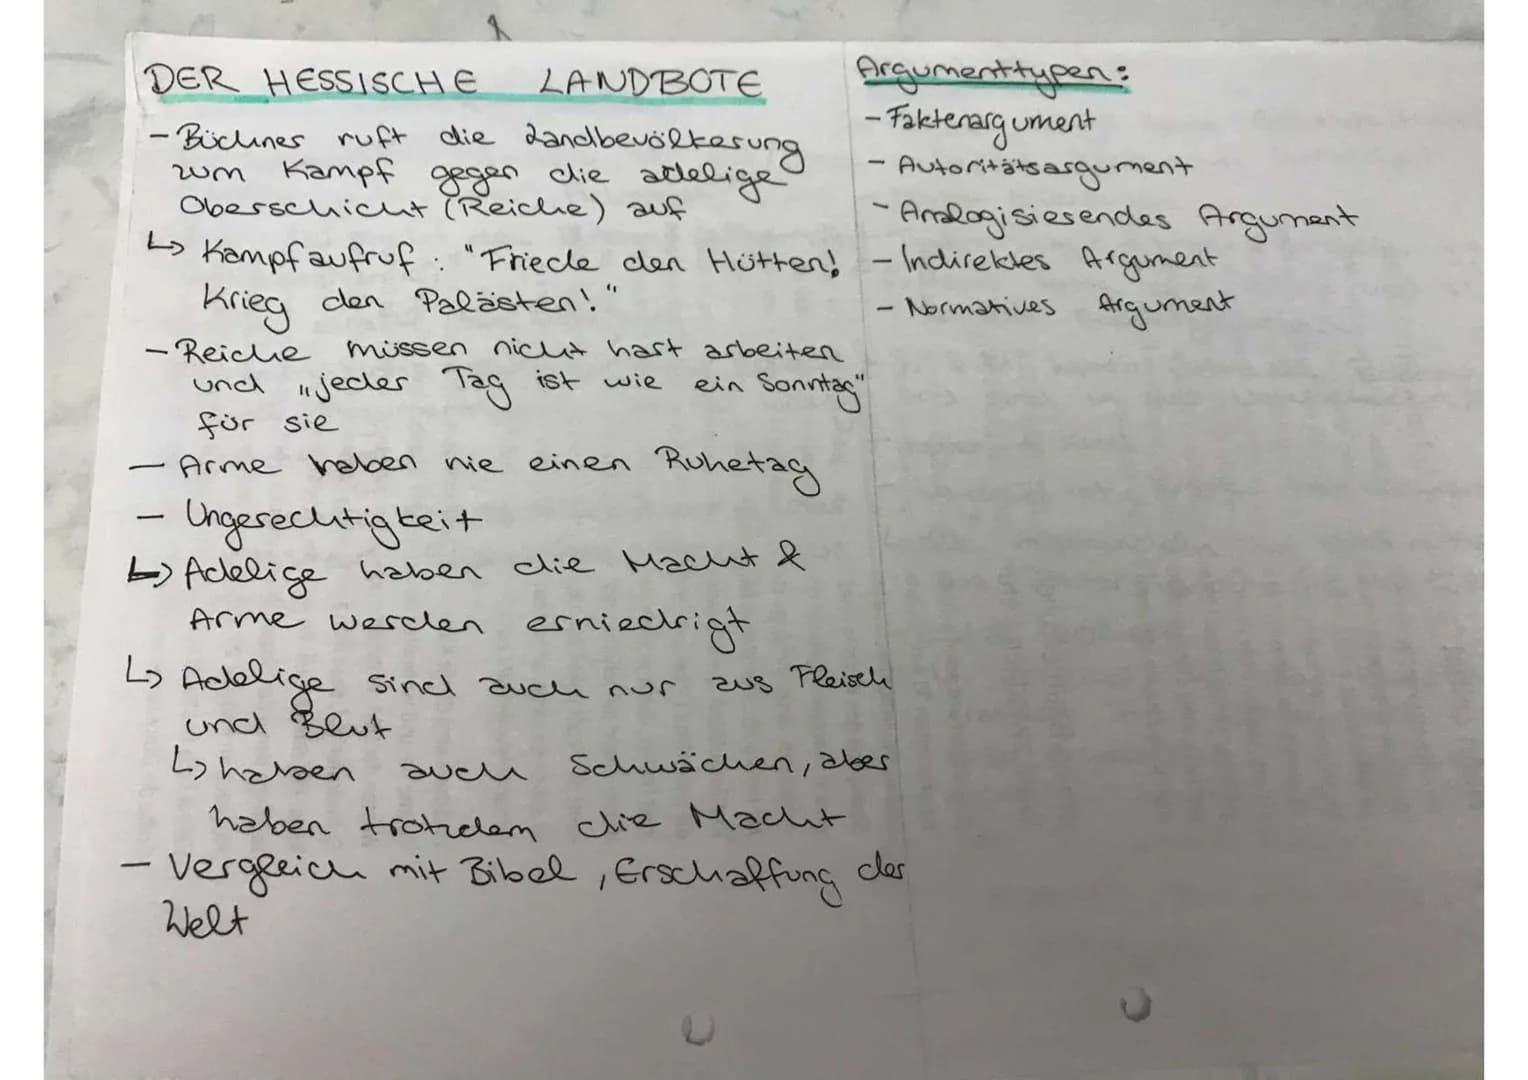 DER HESSISCHE LANDBOTE
- Büchner ruft die Landbevölkerung
zum Kampf gegen die adelige
Oberschicht (Reiche) auf
↳ Kampfaufruf: "Friede den Hütten!
Krieg den Palästen!"
- Reiche müssen nicht hart arbeiten
und „jeder Tag ist wie ein Sonntag"
für sie
- Arme haben nie einen Ruhetag
- Ungerechtigkeit
↳ Adelige haben die Macht &
Arme werden erniedrigt
↳ Adelige sind auch nur aus Fleisch
und Blut
↳ haben auch Schwächen, aber
haben trotzdem die Macht
- Vergleich mit Bibel, Erschaffung der
Welt
Argumenttypen:
- Faktenargument
- Autoritätsargument
- Analogisierendes Argument
- Indirektes Argument
- Normatives Argument